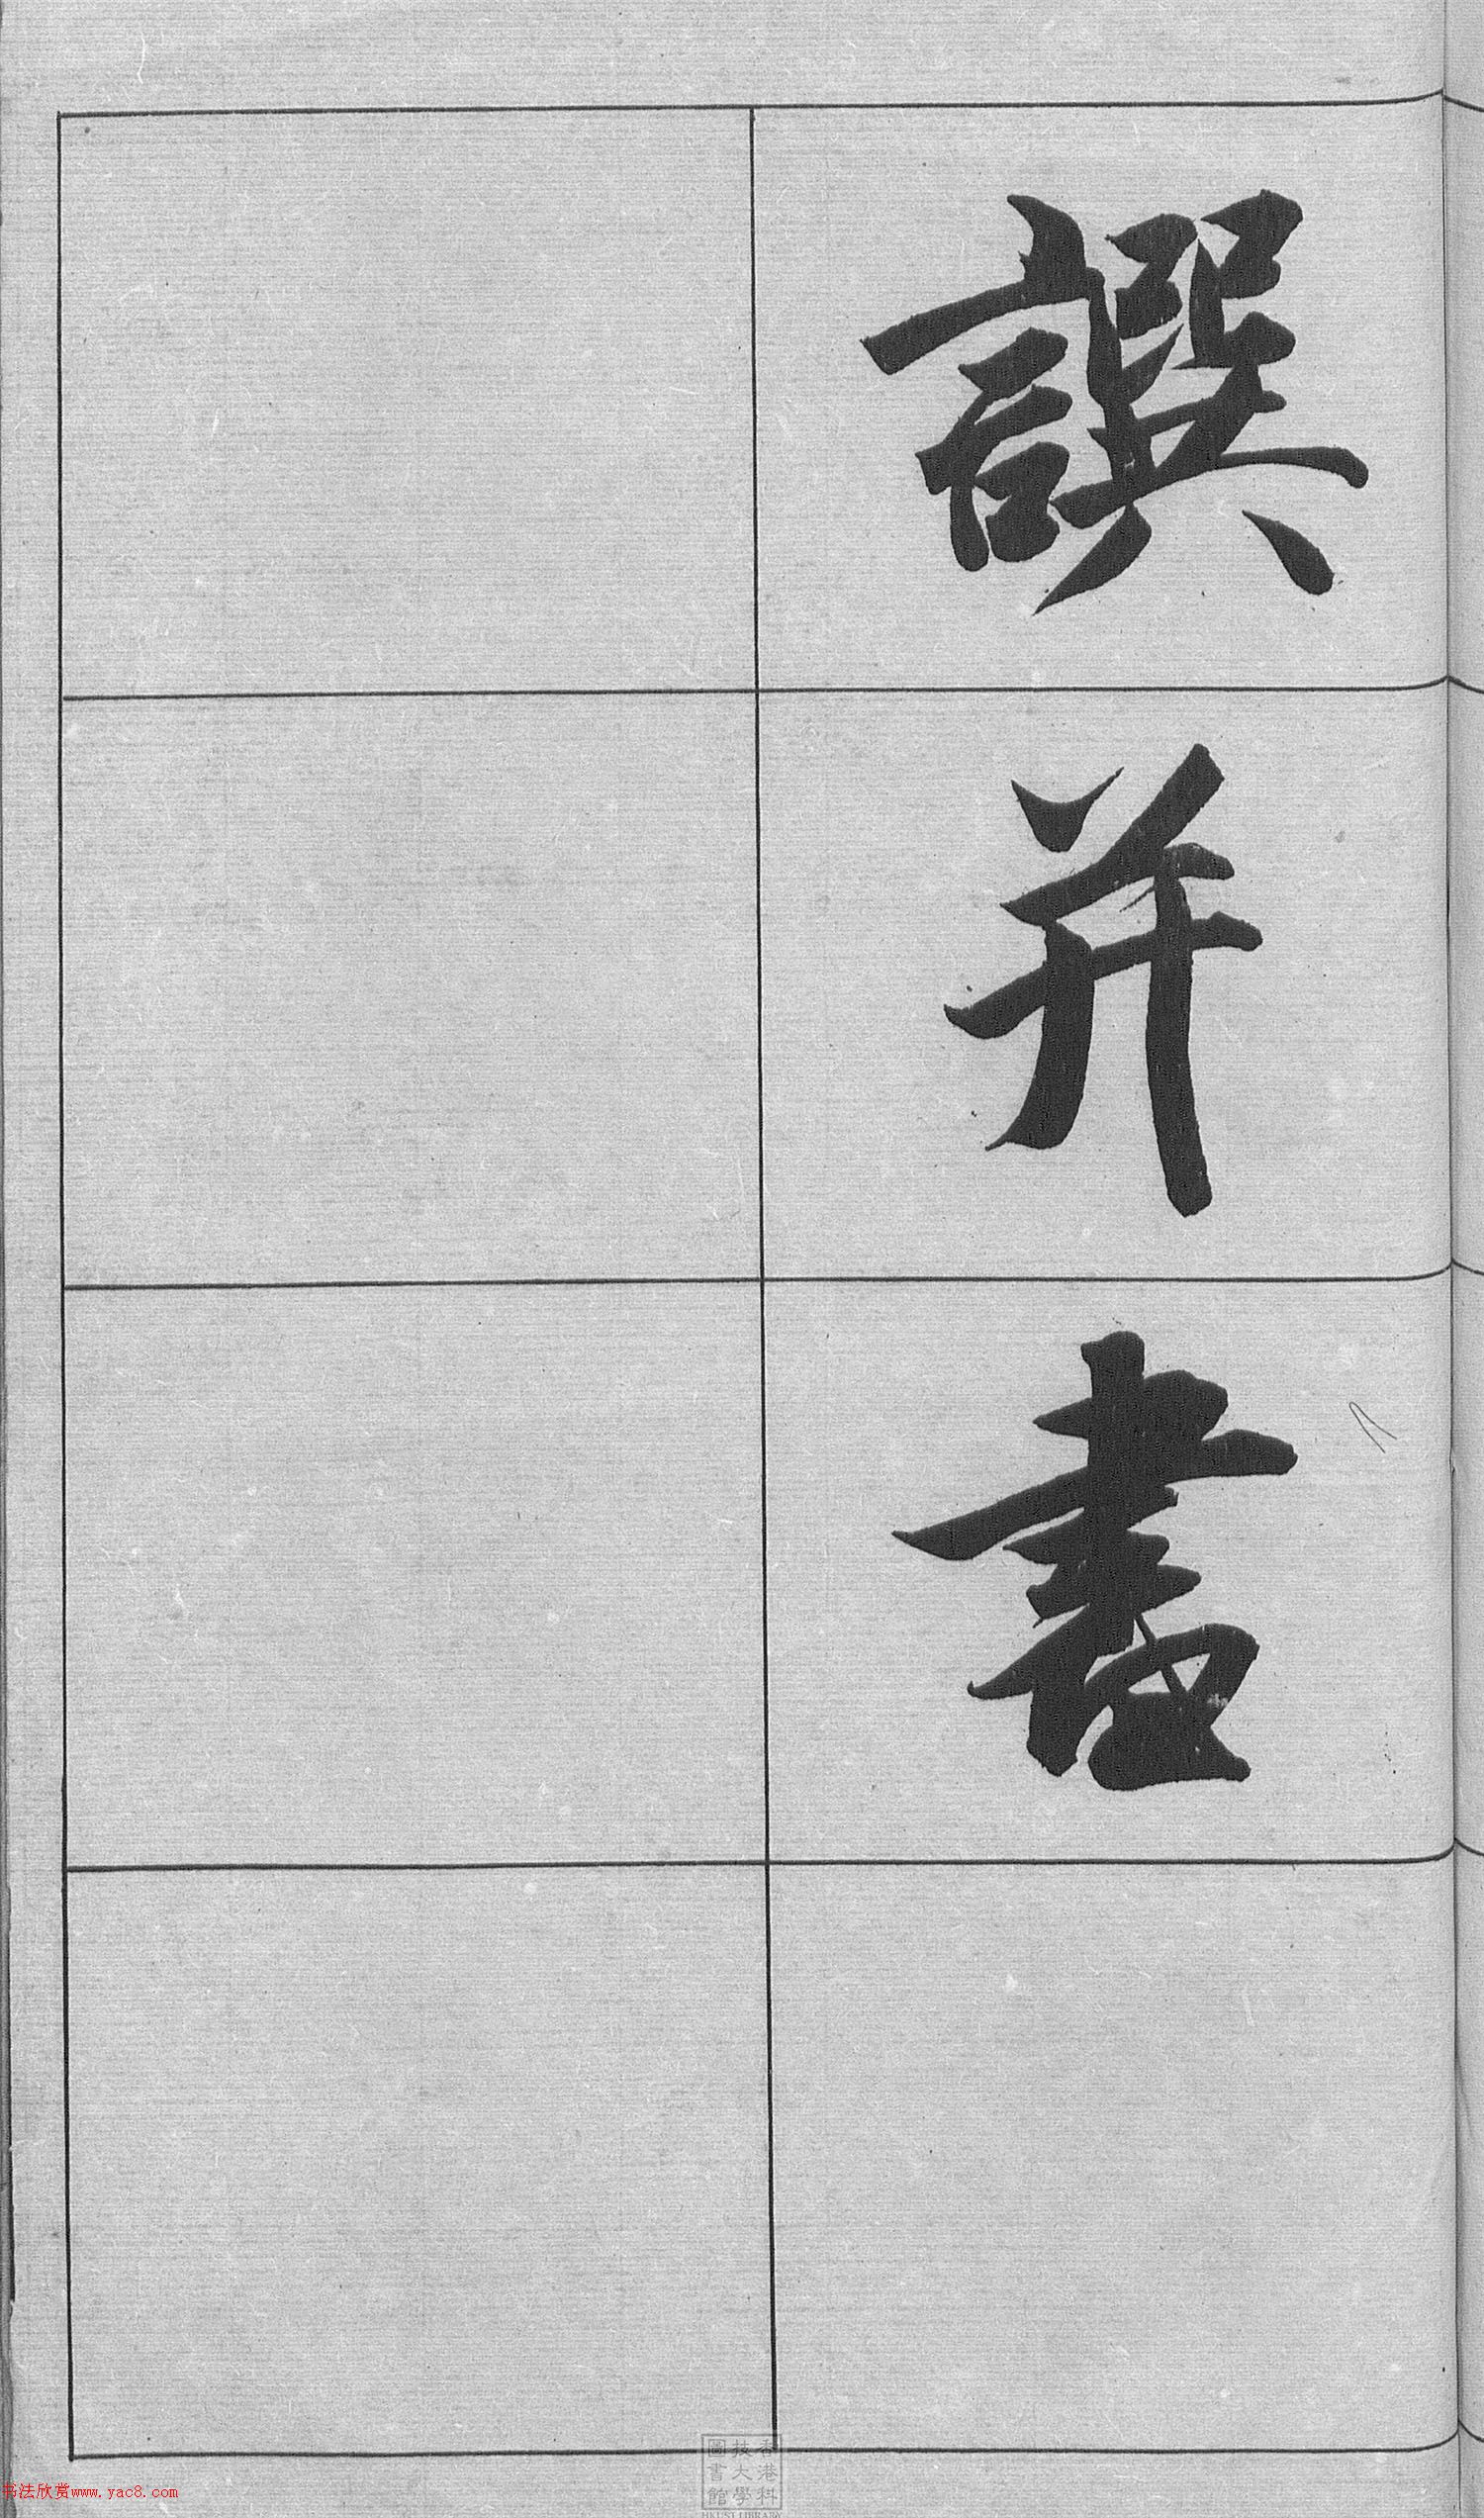 譔
并
書
书法欣赏www.yac8.com
香港科
技大學
圖書館
HKUST LIBRARY